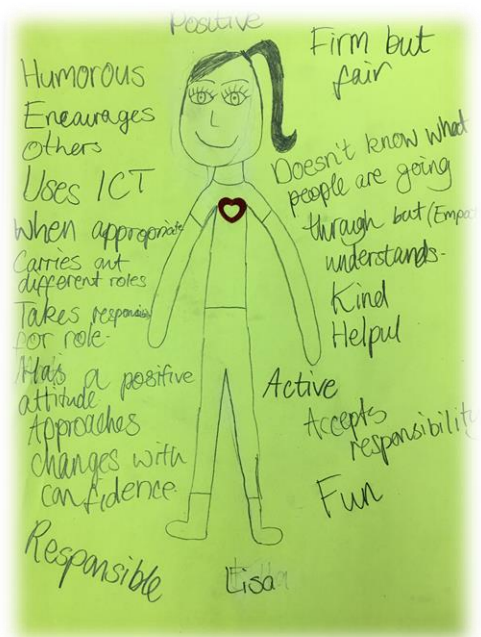 Positive
Humorous
Encaurages
Others
Uses ICT
When appropriate
Carries out
different roles
Takes
for role.
Has a positive
attitude
Approaches
changes with
confidence.
Responsible
Firm but
fair
Doesn't know what
people are going
through but (Empa
understands.
Kind
Helpul
Active
Accepts
responsibility
Fun
Lisa